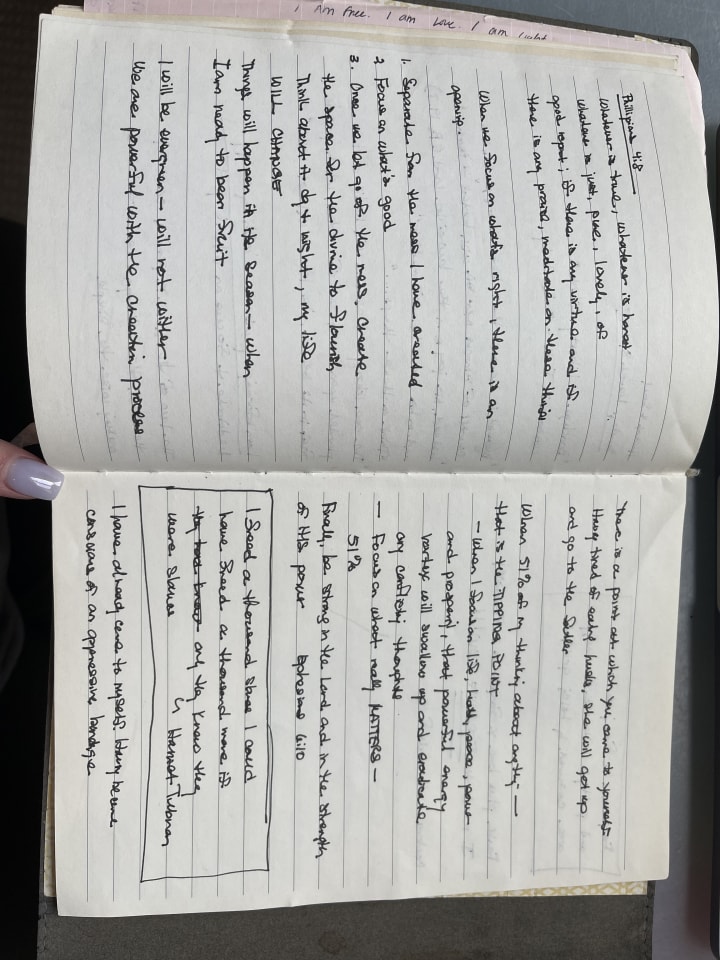 I Am free. I am Love. I am light
Phillipians 4:8
Whatever is true, whatever is honest
whatever is just, pure, lovely, of
good report; if there is any virtue and if
there is any praise, meditate on these things
When we focus on what's right, there is an
opening.
1. Separate from the mess I have created
2. Focus on what's good
3. Once we let go of the mess, create
the space for the divine to flourish
Think about it day & night, my life
WILL CHANGE
Things will happen in the season - when
I am ready to bear fruit
I will be evergreen - will not wither
We are powerful with the creation process
There is a point at which you come to yourself.
Having tired of eating husks, she will get up
and go to the father
When 51% of my thinking about anything -
that is the TIPPING POINT
- When I focus on life, health, peace, power
and prosperity, that powerful energy
vortex will swallow up and eradicate
any conflicting thoughts
- Focus on what really MATTERS -
51%
Finally, be strong in the Lord and in the strength
of HIS power Ephesians 6:10
I freed a thousand slaves I could
have freed a thousand more if
only they knew they
were slaves
Harriet Tubman
I have already come to myself. Having become
conscious of an oppressive bondage